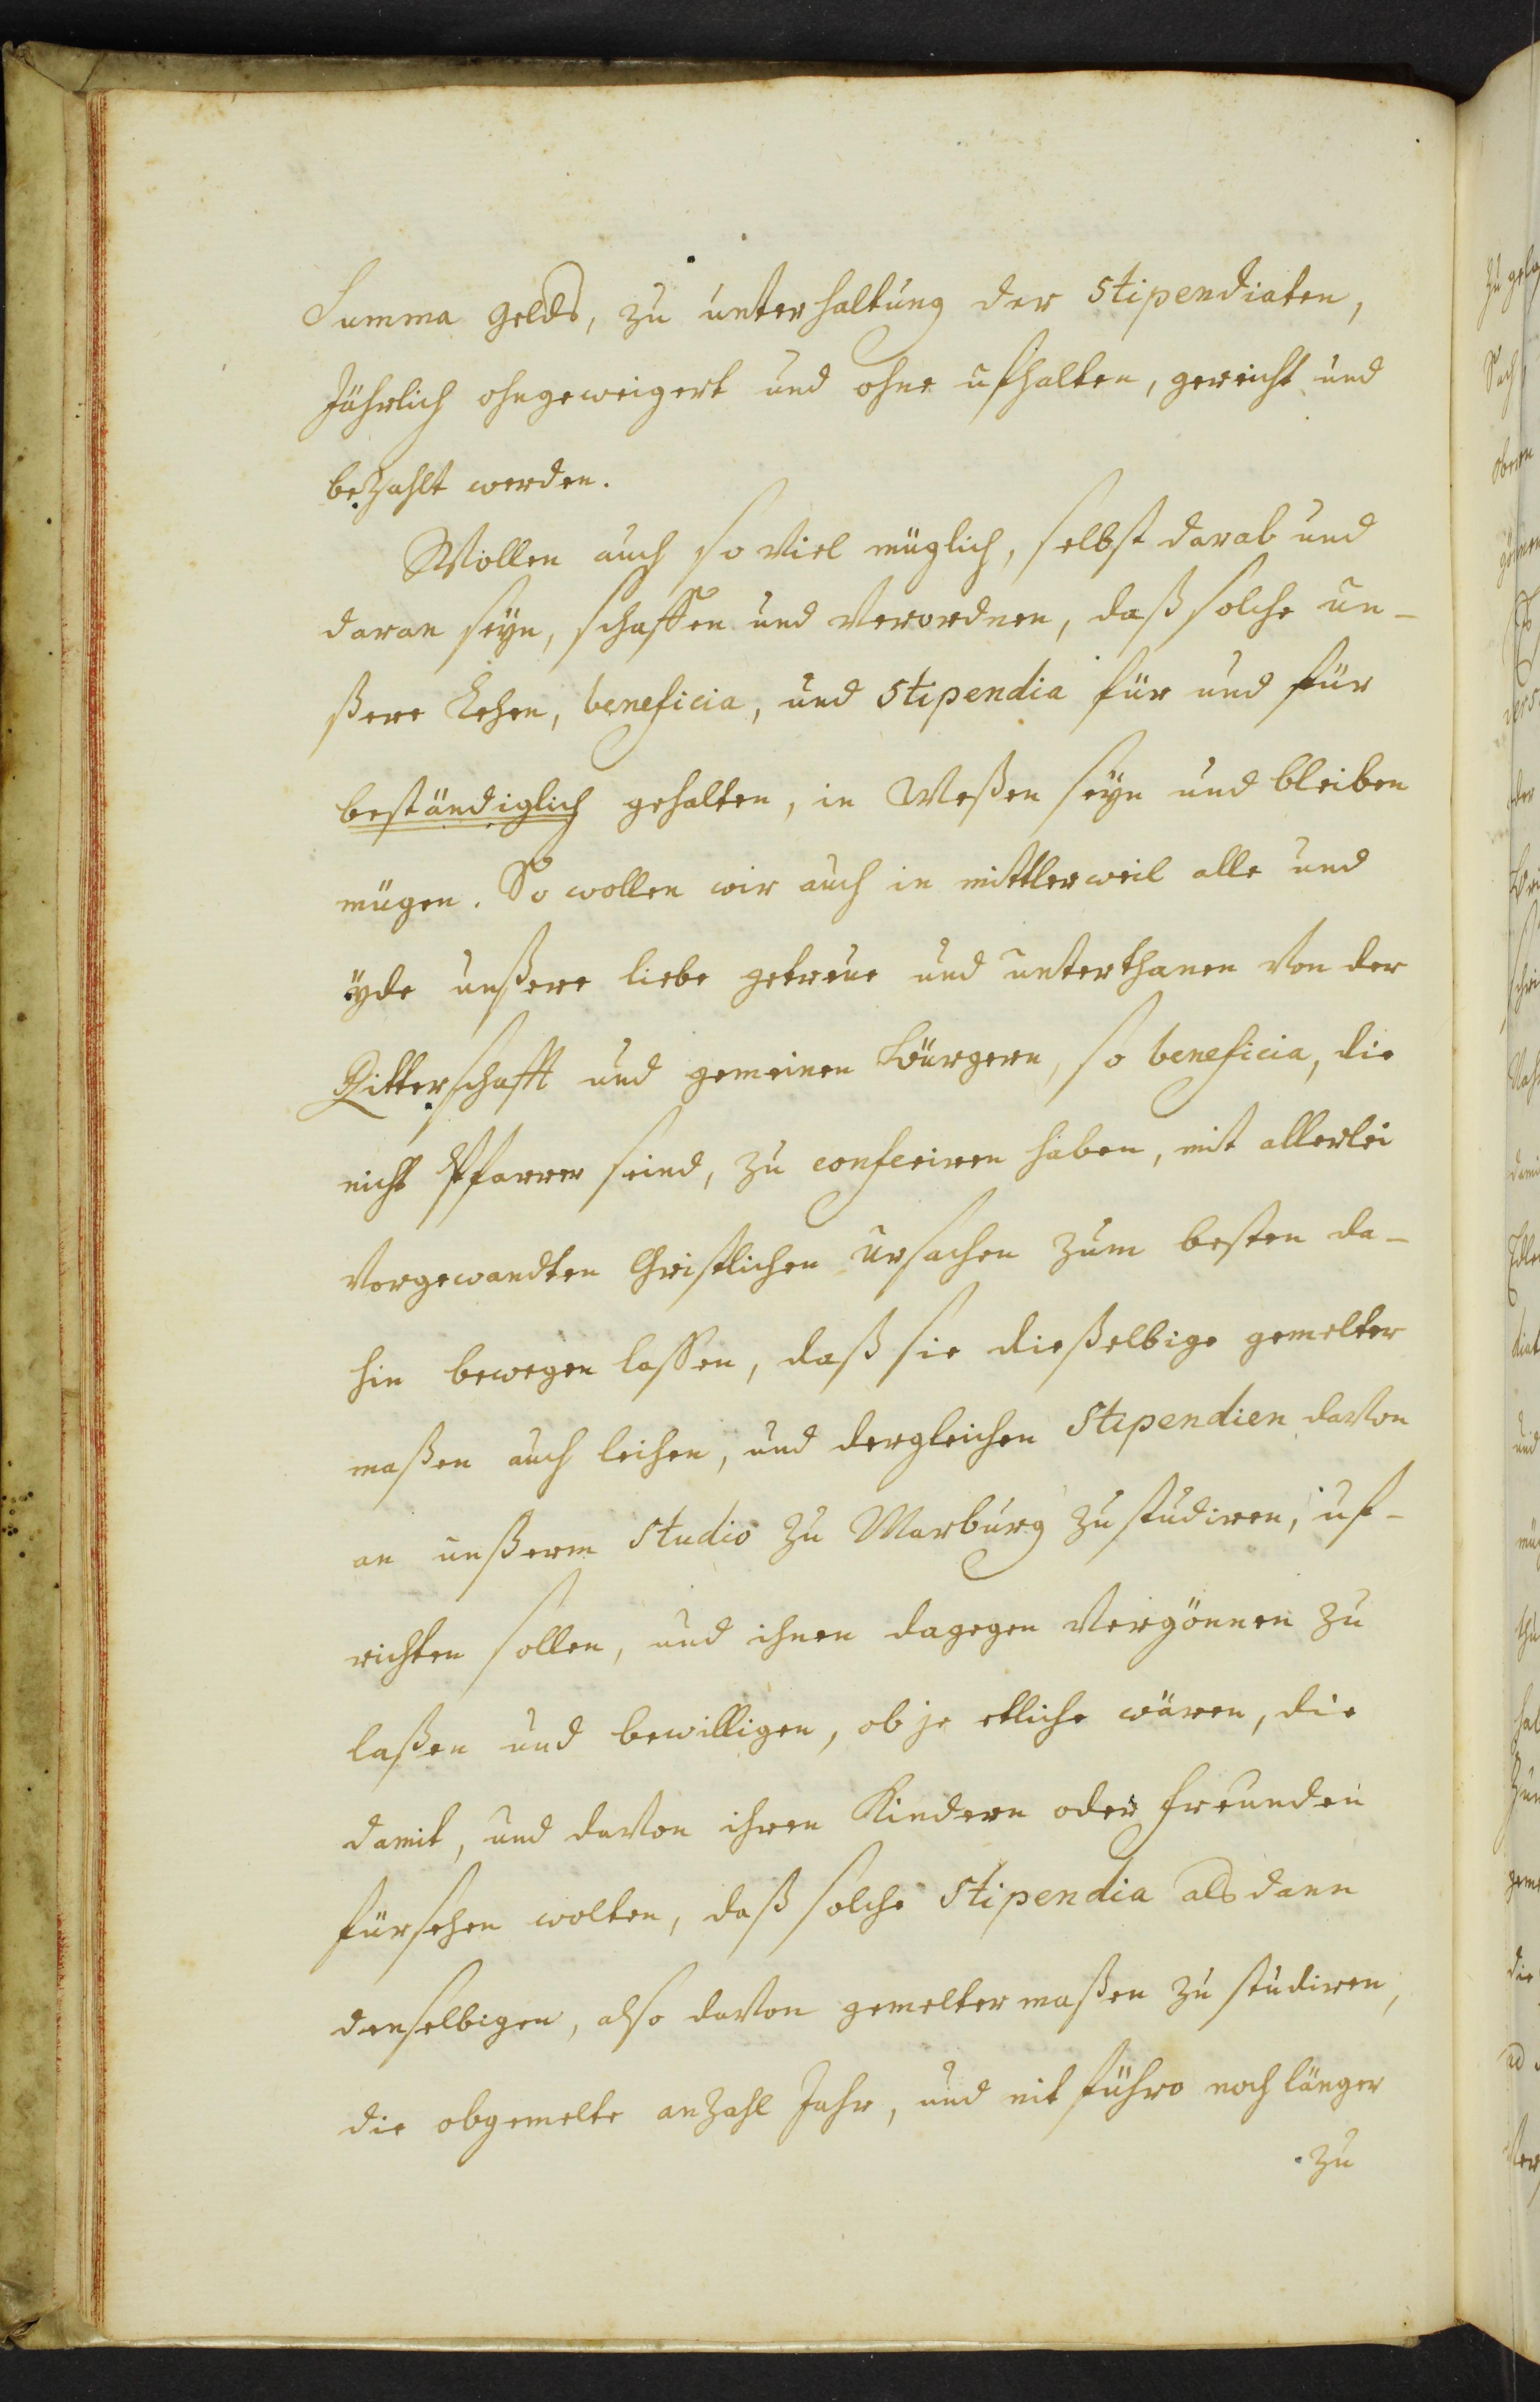 Summa gelds, zu unterhaltung der Stipendiaten,
Jährlich ohngeweigert und ohne ufhalten, gereicht und
bezahlt werden.
Wollen auch so viel müglich, selbst darab und
daran seyn, schaffen und verordnen, daß solche un-
ßere Lehen, beneficia, und Stipendia für und für
beständiglich gehalten, in Weßen seyn und bleiben
mügen. So wollen wir auch in mittlerweil alle und
yde unßere liebe getreue und unterthanen von der
Ritterschafft und gemeinen Bürgern, so beneficia, die
nicht Pfarrer seind, zu conferiren haben, mit allerlei
vorgewandten Christlichen ursachen zum besten da-
hin bewegen lassen, daß sie dießelbige gemelter
maßen auch leihen, und dergleichen Stipendien davon
an unßerm Studio zu Marburg zu studiren, uf-
richten sollen, und ihnen dagegen vergönnen zu
laßen und bewilligen, ob je etliche wären, die
damit, und davon ihren Kindern oder freunden
fürsehen wolten, daß solche Stipendia alsdann
denselbigen, also davon gemelter maßen zu studiren,
die obgemelte anzahl Jahr, und nit führo noch länger
zu